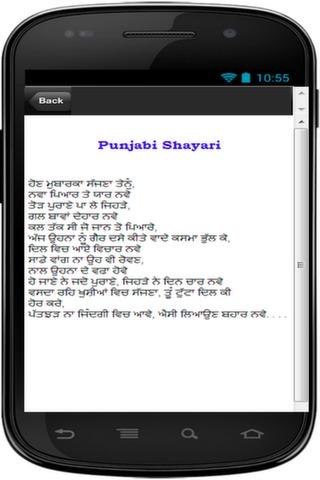 10:55
Back
Punjabi Shayari
ਹੋਣ ਮੁਬਾਰਕਾ ਸੱਜਣਾ ਤੇਨੂੰ,
ਨਵਾ ਪਿਆਰ ਤੇ ਯਾਰ ਨਵੇ
ਤੋੜ ਪੁਰਾਣੇ ਪਾ ਲੇ ਜਿਹੜੇ,
ਗਲ ਬਾਵਾਂ ਦੇਹਾਰ ਨਵੇ
ਕਲ ਤੱਕ ਸੀ ਜੋ ਜਾਨ ਤੋ ਪਿਆਰੇ,
ਅੱਜ ਉਹਨਾ ਨੂੰ ਗੈਰ ਦਸੇ ਕੀਤੇ ਵਾਦੇ ਕਸਮਾ ਭੁੱਲ ਕੇ,
ਦਿਲ ਵਿਚ ਆਏ ਵਿਚਾਰ ਨਵੇ
ਸਾਡੇ ਵਾਂਗ ਨਾ ਉਹ ਵੀ ਰੋਵਣ,
ਨਾਲ ਉਹਨਾ ਦੇ ਵਫਾ ਹੋਵੇ
ਹੋ ਜਾਣੇ ਨੇ ਜਦੋ ਪੁਰਾਣੇ, ਜਿਹੜੇ ਨੇ ਦਿਨ ਚਾਰ ਨਵੇ
ਵਸਦਾ ਰਹਿ ਖੁਸ਼ੀਆਂ ਵਿਚ ਸੱਜਣਾ, ਤੂੰ ਟੁੱਟਾ ਦਿਲ ਕੀ
ਹੋਰ ਕਰੇ,
ਪੱਤਝੜ ਨਾ ਜਿੰਦਗੀ ਵਿਚ ਆਵੇ, ਐਸੀ ਲਿਆਉਣ ਬਹਾਰ ਨਵੇ. . . .